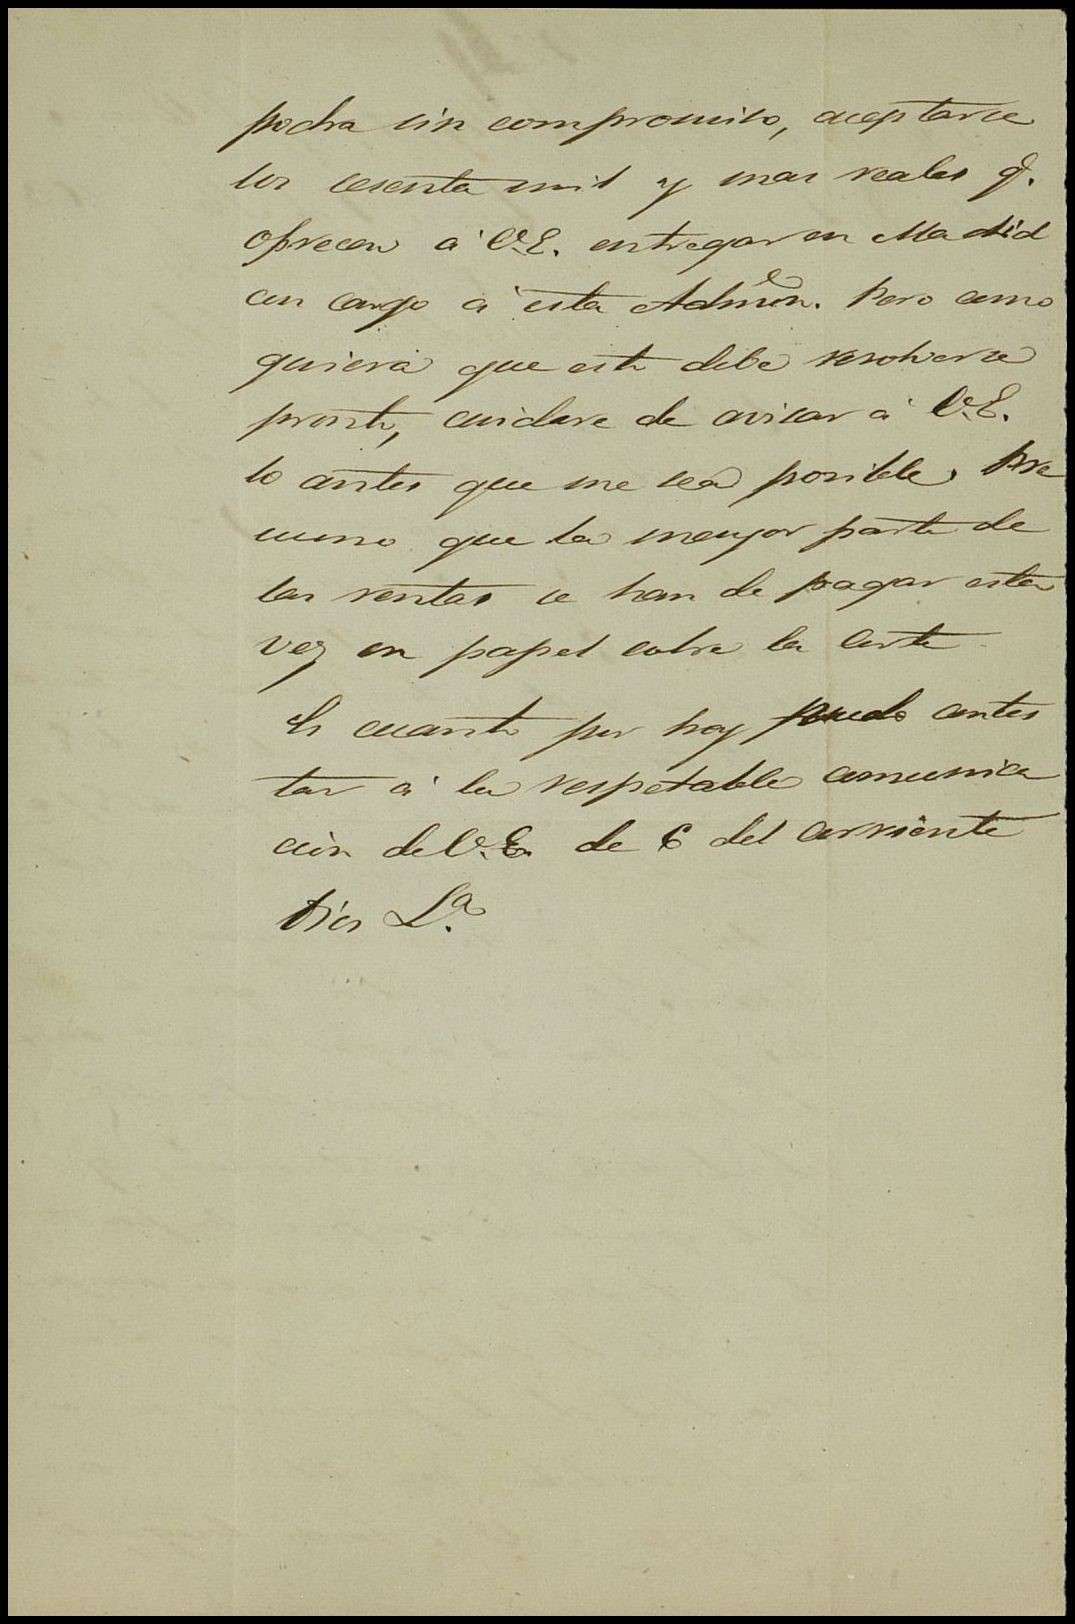 podra sin compromiso, aceptarse
los sesenta mil y mas reales q.
ofrecen á V.E. entregar en Madrid
con cargo á esta Admon. Pero como
quiera que esto debe resolverse
pronto, cuidare de avisar á V.E.
lo antes que me sea posible. Pre
sumo que la mayor parte de
las rentas se han de pagar esta
vez en papel sobre la Corte
Es cuanto por hoy puedo contes
tar á la respetable comunica
ción de V.E. de 6 del corriente
Dios